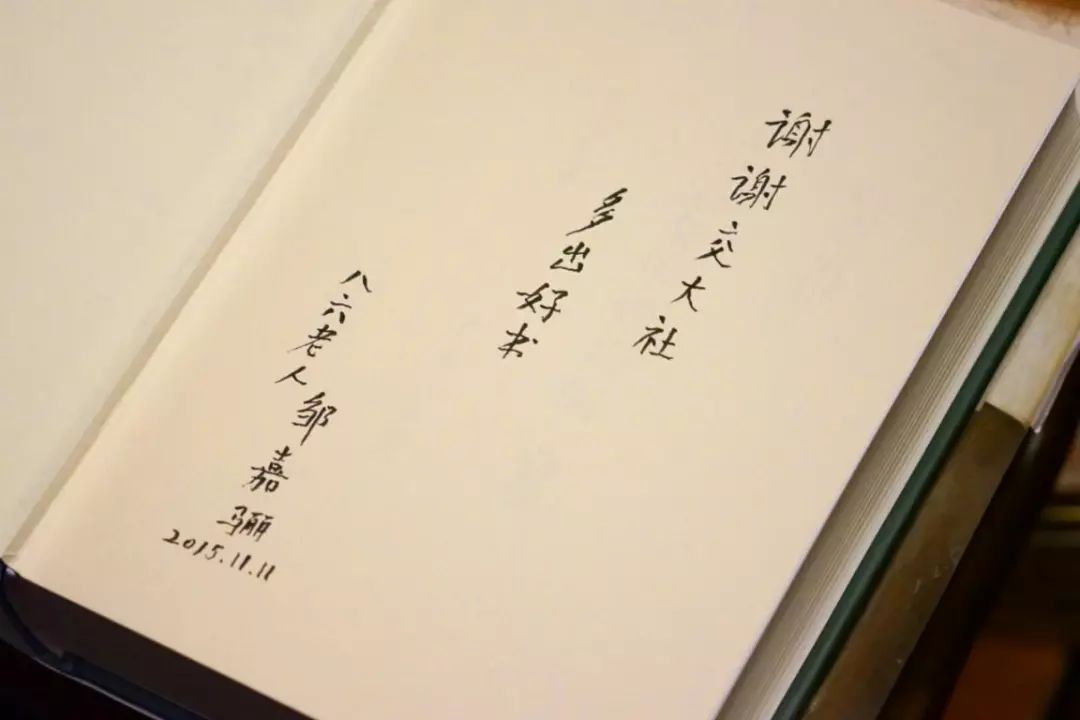 谢谢交大社
多出好书
八六老人邹嘉骊
2015.11.11